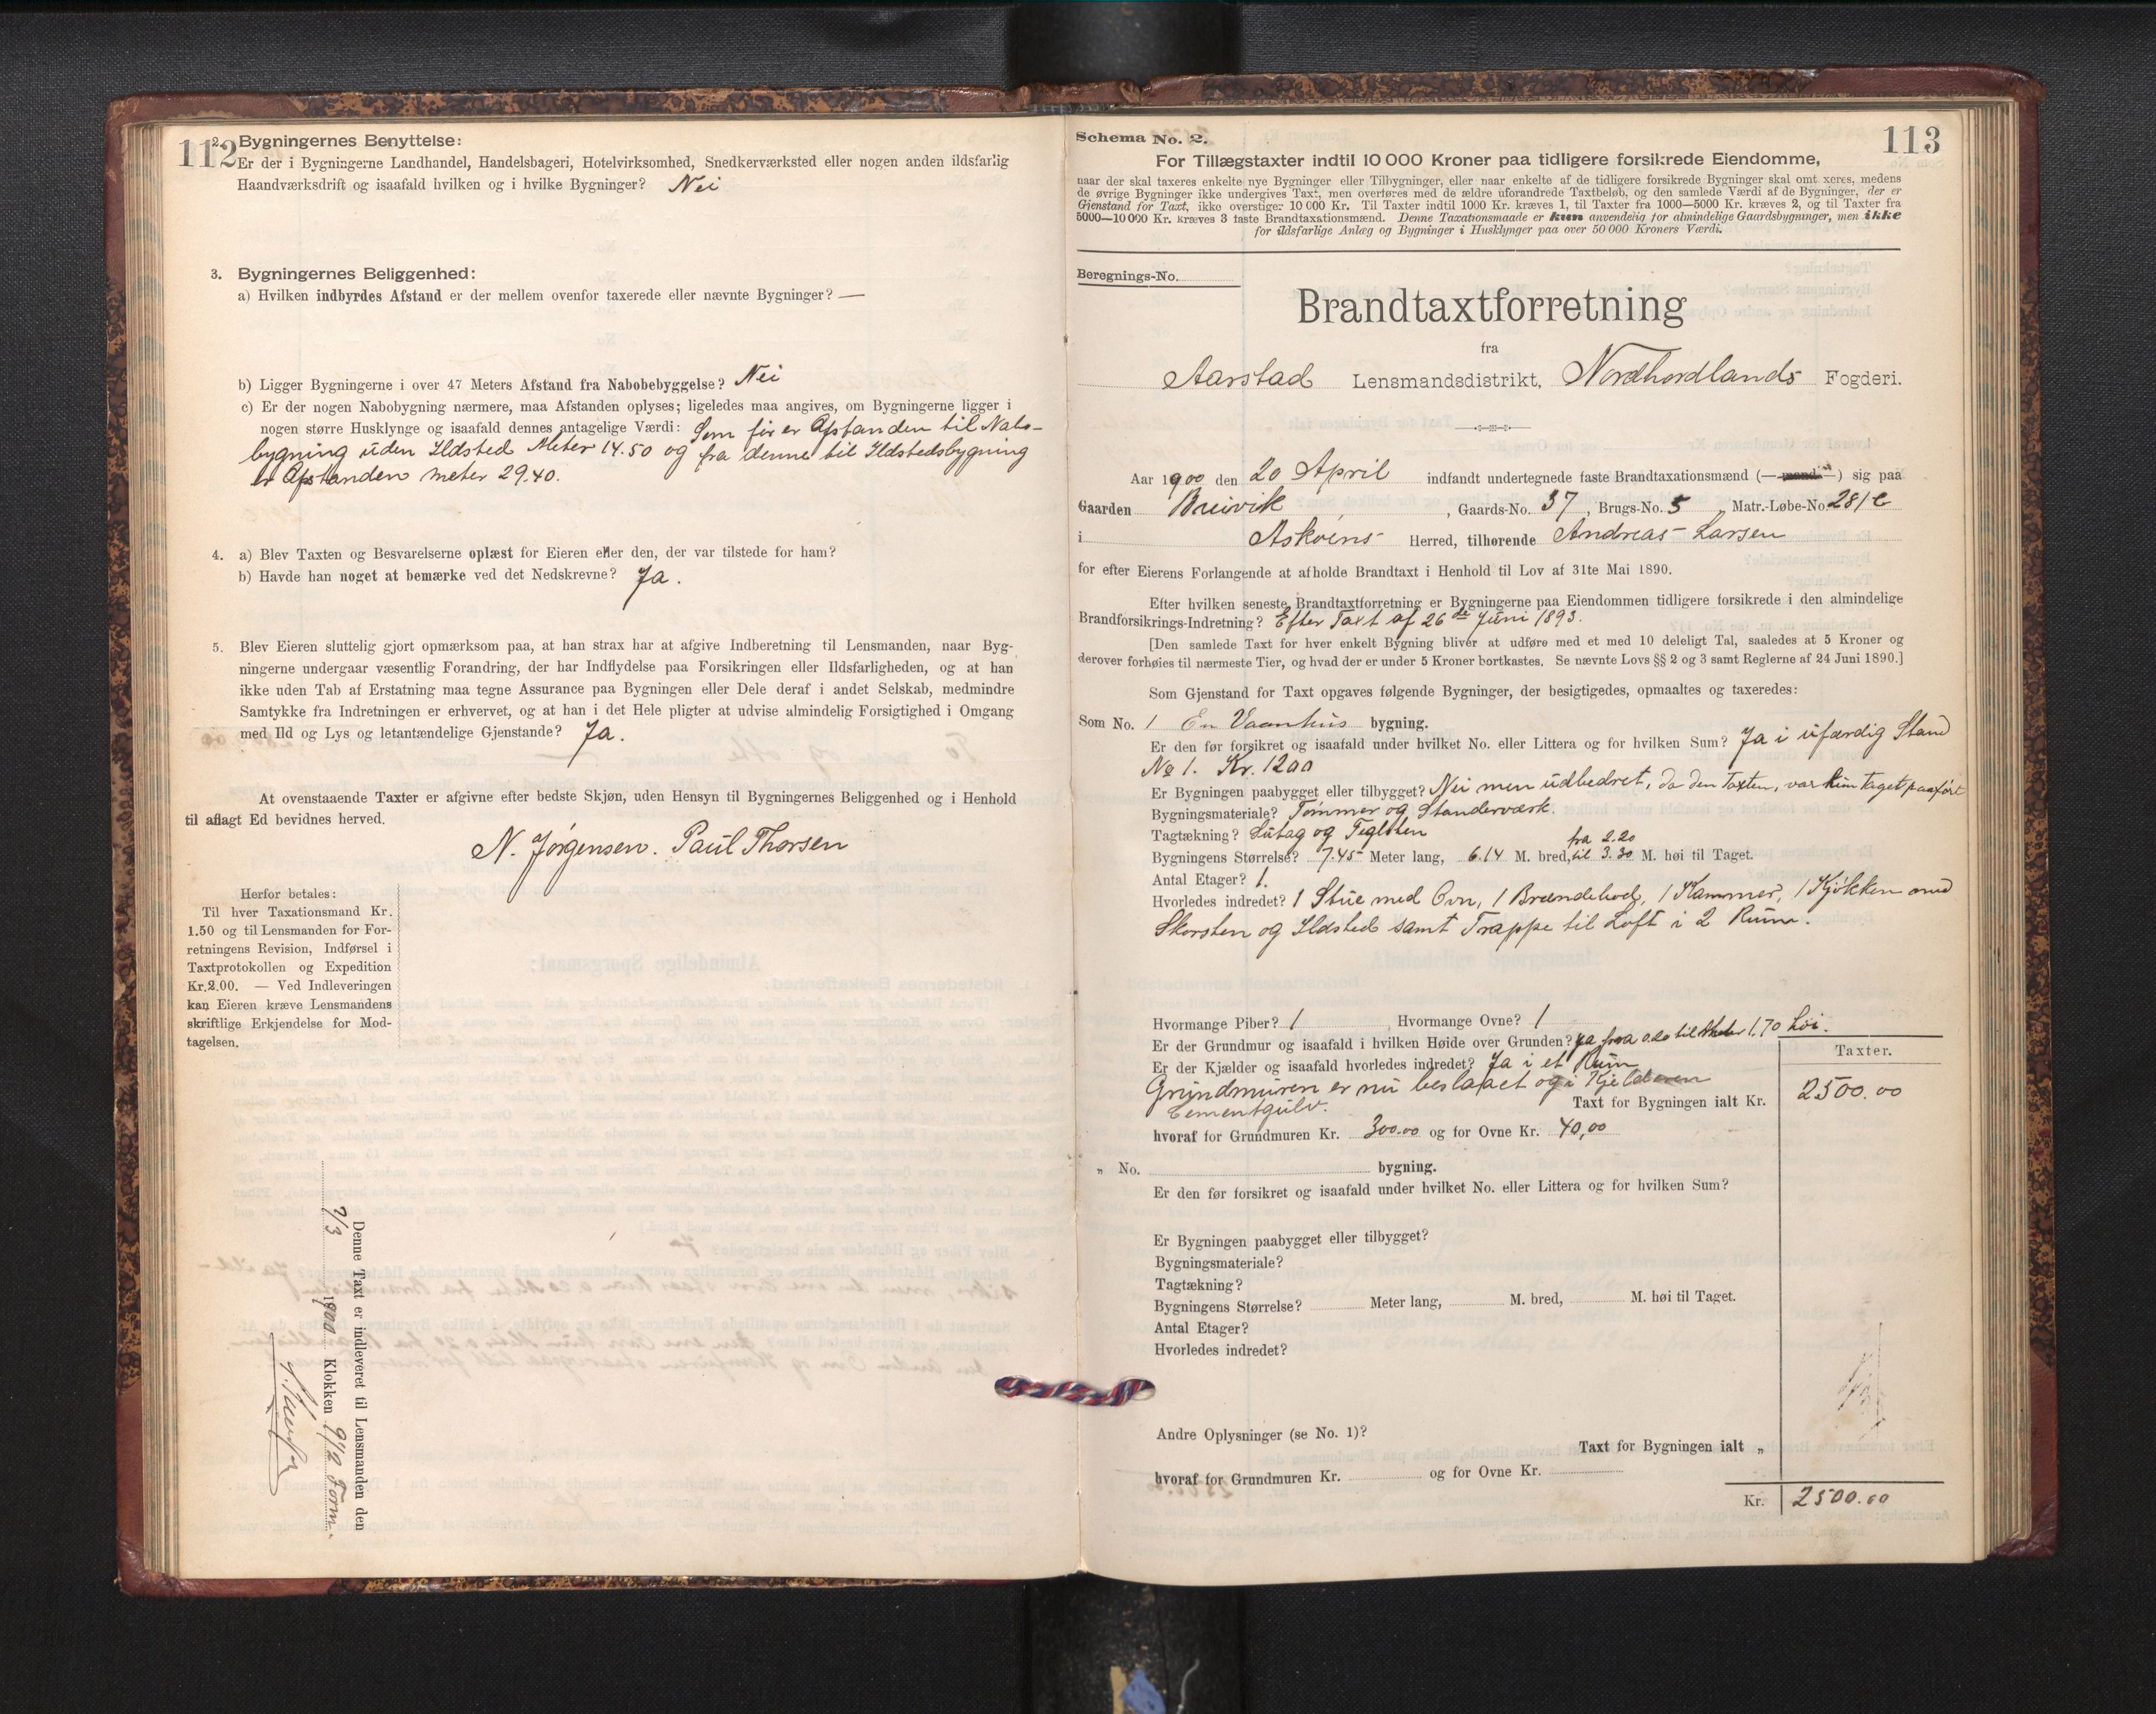 112
2. Bygningernes Benyttelse:
Er der i Bygningerne Landhandel, Handelsbageri, Hotelvirksomhed, Snedkerværksted eller nogen anden ildsfarlig
Haandværksdrift og isaafald hvilken og i hvilke Bygninger? Nei
3. Bygningernes Beliggenhed:
a) Hvilken indbyrdes Afstand er der mellem ovenfor taxerede eller nævnte Bygninger? —
b) Ligger Bygningerne i over 47 Meters Afstand fra Nabobebyggelse? Nei
c) Er der nogen Nabobygning nærmere, maa Afstanden oplyses; ligeledes maa angives, om Bygningerne ligger i
nogen større Husklynge og isaafald dennes antagelige Værdi: Som før er Afstanden til Nabo-
bygning uden Ildsted Meter 14.50 og fra denne til Ildstedsbygning
er Afstanden meter 29.40.
4. a) Blev Taxten og Besvarelserne oplæst for Eieren eller den, der var tilstede for ham?
b) Havde han noget at bemærke ved det Nedskrevne? Ja.
5. Blev Eieren sluttelig gjort opmærksom paa, at han strax har at afgive Indberetning til Lensmanden, naar Byg-
ningerne undergaar væsentlig Forandring, der har Indflydelse paa Forsikringen eller Ildsfarligheden, og at han
ikke uden Tab af Erstatning maa tegne Assurance paa Bygningen eller Dele deraf i andet Selskab, medmindre
Samtykke fra Indretningen er erhvervet, og at han i det Hele pligter at udvise almindelig Forsigtighed i Omgang
med Ild og Lys og letantændelige Gjenstande? Ja.
At ovenstaaende Taxter er afgivne efter bedste Skjøn, uden Hensyn til Bygningernes Beliggenhed og i Henhold
til aflagt Ed bevidnes herved.
N. Jørgensen. Paul Thorsen
Herfor betales:
Til hver Taxationsmand Kr.
1.50 og til Lensmanden for For-
retningens Revision, Indførsel i
Taxtprotokollen og Expedition
Kr.2.00. — Ved Indleveringen
kan Eieren kræve Lensmandens
skriftlige Erkjendelse for Mod-
tagelsen.
Denne Taxt er indleveret til Lensmanden den
7/3 1900 Klokken 9 1/2 Form.
113
Schema No. 2.
For Tillægstaxter indtil 10 000 Kroner paa tidligere forsikrede Eiendomme,
naar der skal taxeres enkelte nye Bygninger eller Tilbygninger, eller naar enkelte af de tidligere forsikrede Bygninger skal omt xeres, medens
de øvrige Bygninger ikke undergives Taxt, men overføres med de ældre uforandrede Taxtbeløb, og den samlede Værdi af de Bygninger, der er
Gjenstand for Taxt, ikke overstiger 10 000 Kr. Til Taxter indtil 1000 Kr. kræves 1, til Taxter fra 1000—5000 Kr. kræves 2, og til Taxter fra
5000—10 000 Kr. kræves 3 faste Brandtaxationsmænd. Denne Taxationsmaade er kun anvendelig for almindelige Gaardsbygninger, men ikke
for ildsfarlige Anlæg og Bygninger i Husklynger paa over 50 000 Kroners Værdi.
Beregnings-No.
Brandtaxtforretning
fra
Aarstad Lensmandsdistrikt, Nordhordlands Fogderi.
Aar 1900 den 20 April indfandt undertegnede faste Brandtaxationsmænd (—mand—) sig paa
Gaarden Breivik, Gaards-No. 37, Brugs-No. 5, Matr.-Løbe-No. 281 c
i Askøens Herred, tilhørende Andreas Larsen
for efter Eierens Forlangende at afholde Brandtaxt i Henhold til Lov af 31te Mai 1890.
Efter hvilken seneste Brandtaxtforretning er Bygningerne paa Eiendommen tidligere forsikrede i den almindelige
Brandforsikrings-Indretning? Efter Taxt af 26de Juni 1893.
[Den samlede Taxt for hver enkelt Bygning bliver at udføre med et med 10 deleligt Tal, saaledes at 5 Kroner og
derover forhøies til nærmeste Tier, og hvad der er under 5 Kroner bortkastes. Se nævnte Lovs §§ 2 og 3 samt Reglerne af 24 Juni 1890.]
Som Gjenstand for Taxt opgaves følgende Bygninger, der besigtigedes, opmaaltes og taxeredes:
Som No. 1 En Vaanhus bygning.
Er den før forsikret og isaafald under hvilket No. eller Littera og for hvilken Sum? Ja i ufærdig Stand
No 1. Kr. 1200
Er Bygningen paabygget eller tilbygget? Nei men udbedret, da den Taxten, var kun Taget paaført
Bygningsmateriale? Tømmer og Standerværk.
Tagtækning? Sutag og Teglsten
Bygningens Størrelse? 7.45 Meter lang, 6.14 M. bred, fra 2.20 til 3.30 M. høi til Taget.
Antal Etager? 1.
Hvorledes indredet? 1 Stue med Ovn, 1 Brændebod, 1 Kammer, 1 Kjøkken med
Skorsten og Ildsted samt Trappe til Loft i 2 Rum.
Hvormange Piber? 1, Hvormange Ovne? 1
Er der Grundmur og isaafald i hvilken Høide over Grunden? Ja fra 0.20 til Meter 1.70 høi.
Er der Kjælder og isaafald hvorledes indredet? Ja i et Rum
Grundmuren er nu beslaaet og i Kjelderen
Cementgulv.
Taxter.
Taxt for Bygningen ialt Kr. 2500.00
hvoraf for Grundmuren Kr. 300.00 og for Ovne Kr. 40,00
„ No. bygning.
Er den før forsikret og isaafald under hvilket No. eller Littera og for hvilken Sum?
Er Bygningen paabygget eller tilbygget?
Bygningsmateriale?
Tagtækning?
Bygningens Størrelse? Meter lang, M. bred, M. høi til Taget.
Antal Etager?
Hvorledes indredet?
Andre Oplysninger (se No. 1)?
Taxt for Bygningen ialt „
hvoraf for Grundmuren Kr. og for Ovne Kr.
Kr. 2500.00